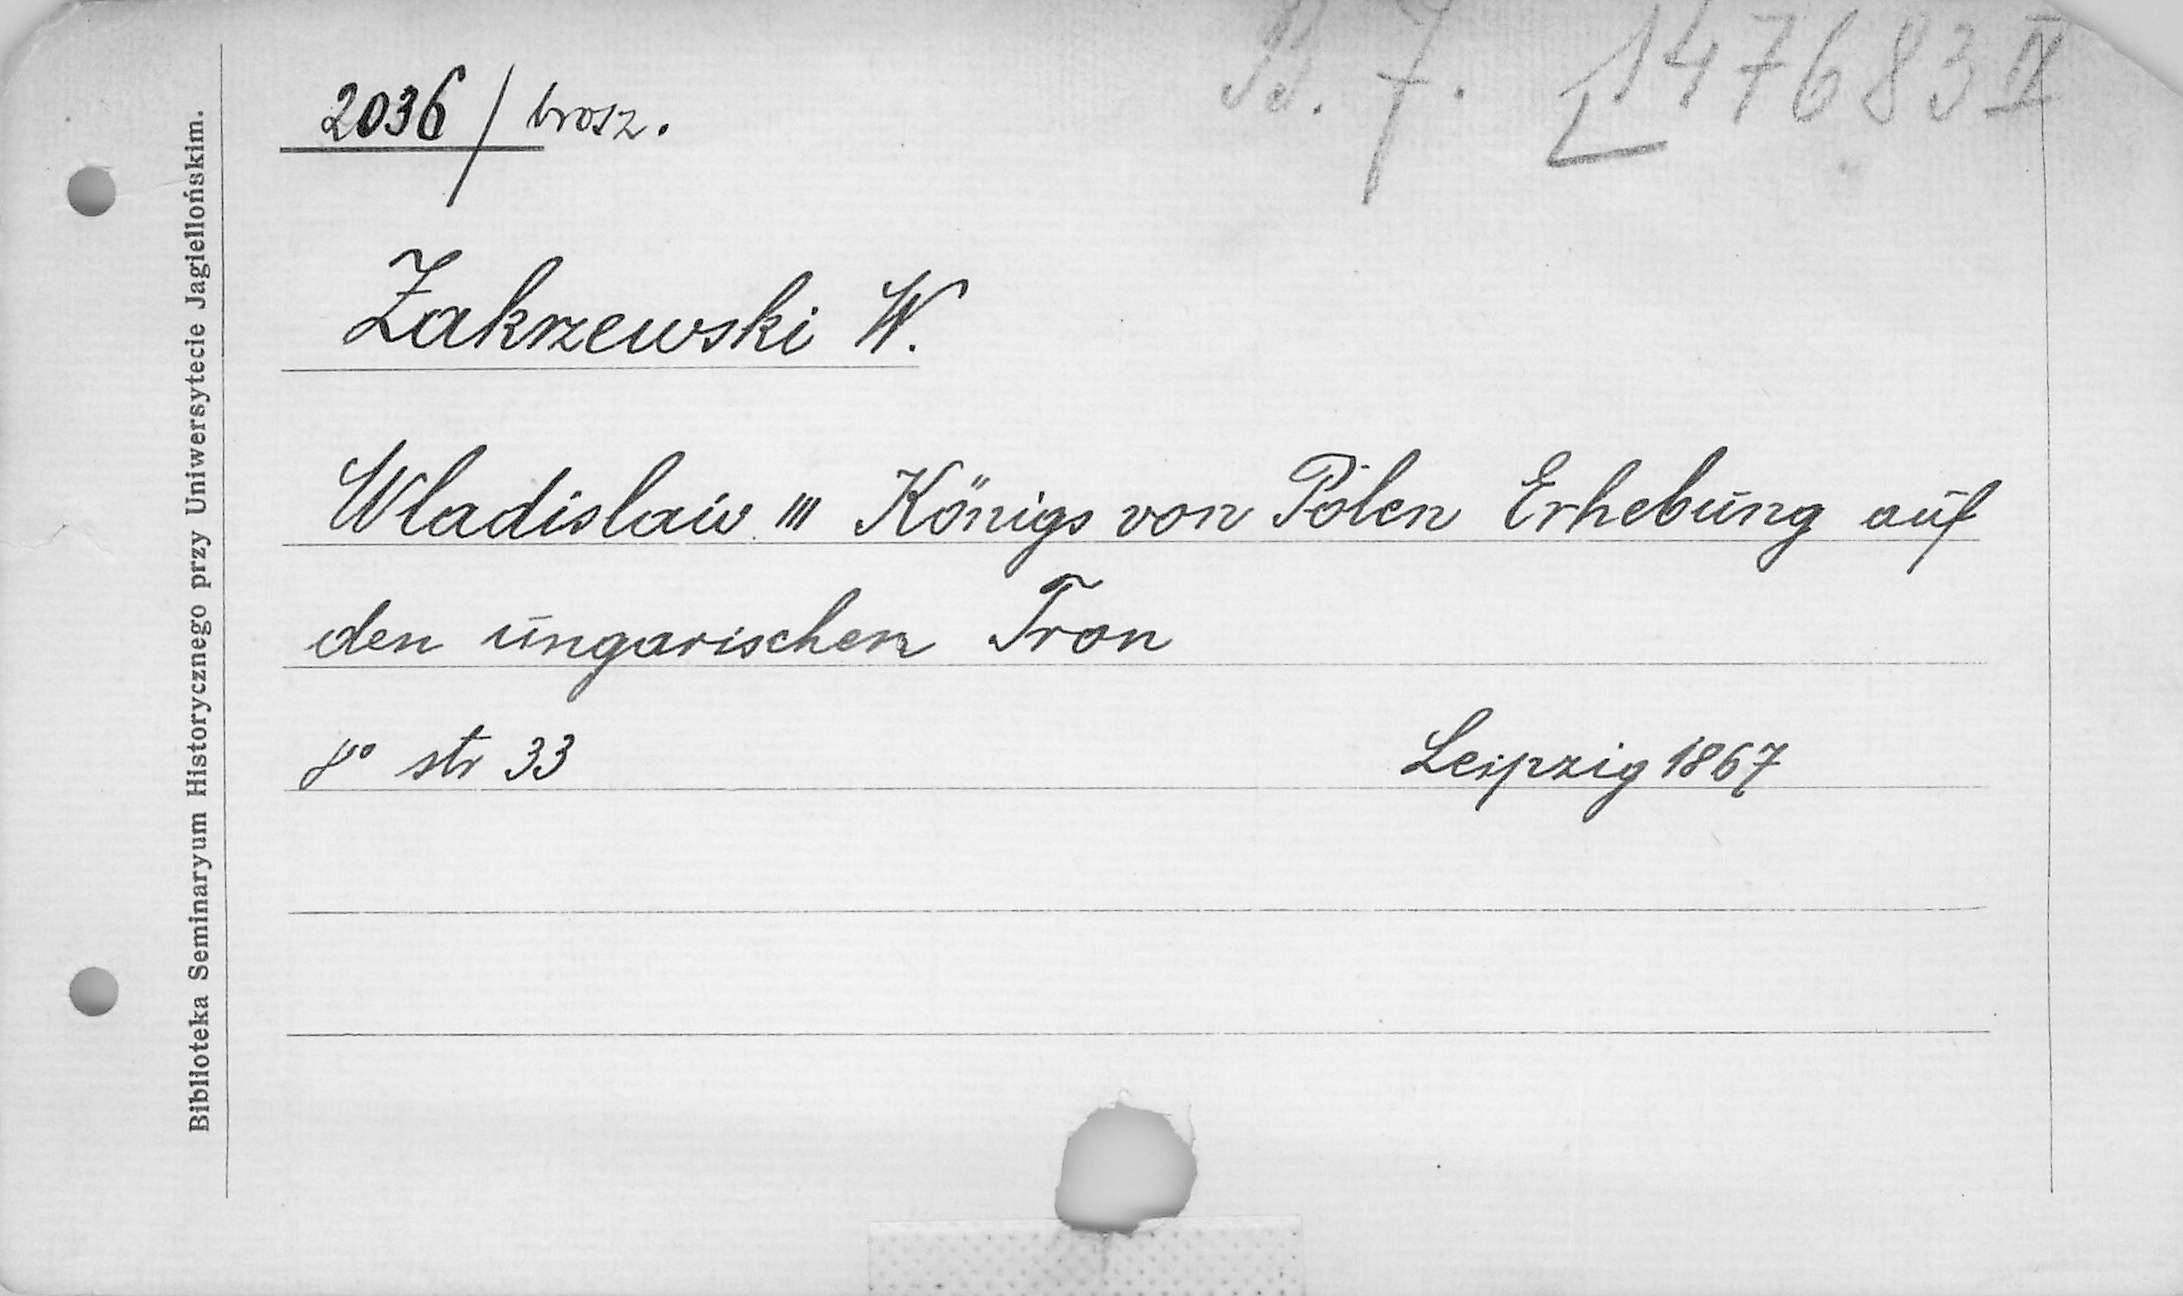 2036 / brosz.
B. J. 147683 II
Zakrzewski W.
Wladislaw III Königs von Polen Erhebung auf
den ungarischen Tron
8° str 33 Leipzig 1867
Biblioteka Seminaryum Historycznego przy Uniwersytecie Jagiellońskim.